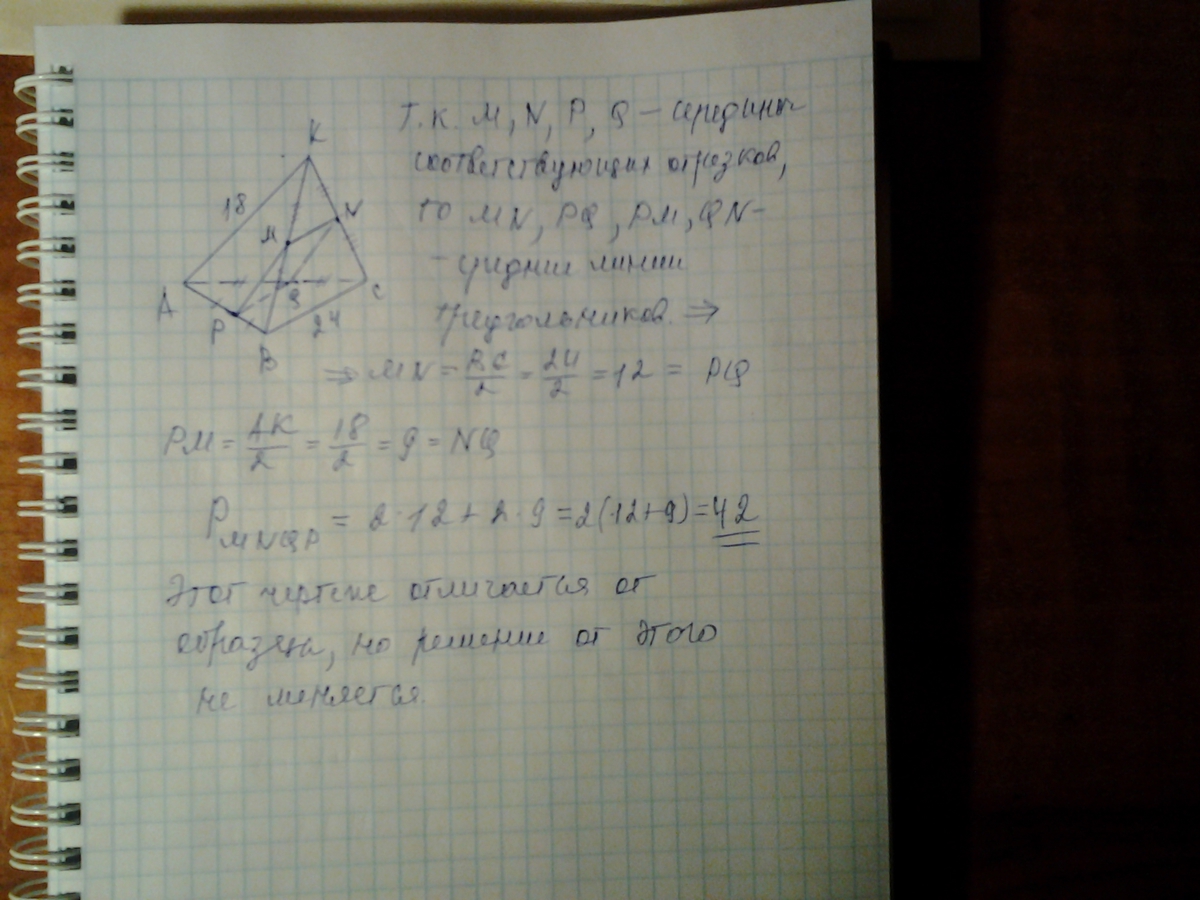 K
18
M
N
A
Q
C
P
24
B
Т.К. M, N, P, Q – середины
соответствующих отрезков,
то MN, PQ, PM, QN –
– средние линии
треугольников ⇒
⇒ MN = BC/2 = 24/2 = 12 = PQ
PM = AK/2 = 18/2 = 9 = NQ
P_MNQP = 2·12 + 2·9 = 2(12+9) = 42
Этот чертеж отличается от
образца, но решение от этого
не меняется.